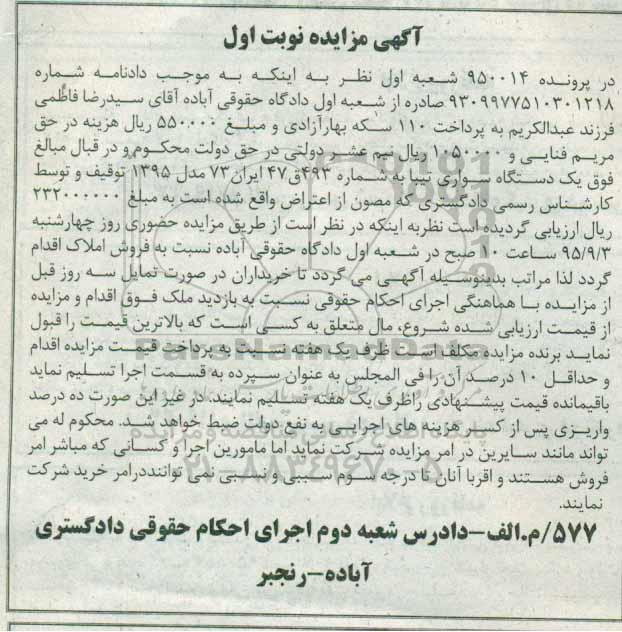 آگهی مزایده نوبت اول
در پرونده ۹۵۰۰۱۴ شعبه اول نظر به اینکه به موجب دادنامه شماره
۹۳۰۹۹۷۷۵۱۰۳۰۱۲۱۸ صادره از شعبه اول دادگاه حقوقی آباده آقای سیدرضا فاطمی
فرزند عبدالکریم به پرداخت ۱۱۰ سکه بهارآزادی و مبلغ ۵۵۰۰۰۰ ریال هزینه در حق
مریم فنایی و ۱۰۵۰۰۰۰ ریال نیم عشر دولتی در حق دولت محکوم و در قبال مبالغ
فوق یک دستگاه سواری تیبا به شماره ۴۹۳ق۴۷ ایران۷۳ مدل ۱۳۹۵ توقیف و توسط
کارشناس رسمی دادگستری که مصون از اعتراض واقع شده است به مبلغ ۲۳۲۰۰۰۰۰۰
ریال ارزیابی گردیده است نظربه اینکه در نظر است از طریق مزایده حضوری روز چهارشنبه
۹۵/۹/۳ ساعت ۱۰ صبح در شعبه اول دادگاه حقوقی آباده نسبت به فروش املاک اقدام
گردد لذا مراتب بدینوسیله آگهی می گردد تا خریداران در صورت تمایل سه روز قبل
از مزایده با هماهنگی اجرای احکام حقوقی نسبت به بازدید ملک فوق اقدام و مزایده
از قیمت ارزیابی شده شروع، مال متعلق به کسی است که بالاترین قیمت را قبول
نماید برنده مزایده مکلف است ظرف یک هفته نسبت به پرداخت قیمت مزایده اقدام
و حداقل ۱۰ درصد آن را فی المجلس به عنوان سپرده به قسمت اجرا تسلیم نماید
باقیمانده قیمت پیشنهادی راظرف یک هفته تسلیم نمایند. در غیر این صورت ده درصد
واریزی پس از کسر هزینه های اجرایی به نفع دولت ضبط خواهد شد. محکوم له می
تواند مانند سایرین در امر مزایده شرکت نماید اما مامورین اجرا و کسانی که مباشر امر
فروش هستند و اقربا آنان تا درجه سوم سببی و نسبی نمی تواننددرامر خرید شرکت
نمایند.
۵۷۷/م.الف-دادرس شعبه دوم اجرای احکام حقوقی دادگستری
آباده-رنجبر
ParsNamadData
۰۲۱-۸۸۳۴۹۶۷۰-۵